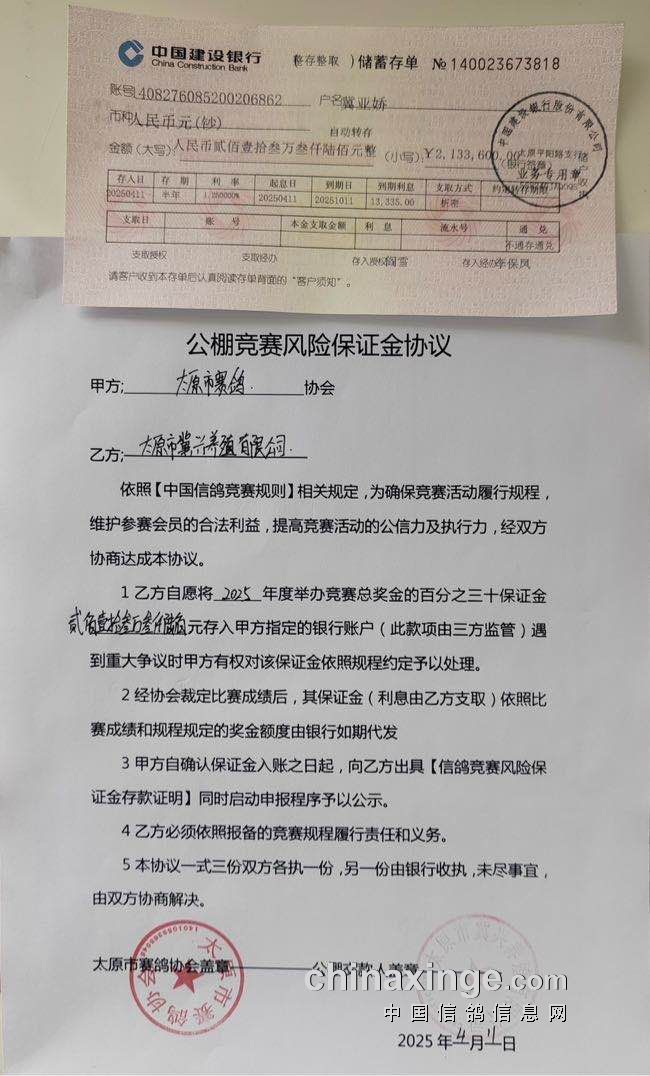 中国建设银行
China Construction Bank
(整存整取 )储蓄存单 № 140023673818
账号 408276085200206862 户名 冀亚娇
币种 人民币元(钞) 自动转存
金额(大写): 人民币贰佰壹拾叁万叁仟陆佰元整 (小写): ¥2,133,600.00
中国建设银行股份有限公司
太原平阳路支行
(银行签章)
业务专用章
存入日 存 期 利 率 起息日 到期日 到期利息 支取方式
20250411 半年 20250411 20251011 13,335.00
支取日 账 号 本金支取金额 利 息 流水号 通 兑
不通存通兑
支取授权 支取经办 存入授权 阎雪 存入经办 李保凤
请客户收到本存单后认真阅读存单背面的“客户须知”。
公棚竞赛风险保证金协议
甲方; 太原市赛鸽 协会
乙方; 太原市冀六养殖有限公司
依照【中国信鸽竞赛规则】相关规定,为确保竞赛活动履行规程,
维护参赛会员的合法利益,提高竞赛活动的公信力及执行力,经双方
协商达成本协议。
1 乙方自愿将 2025 年度举办竞赛总奖金的百分之三十保证金
贰佰壹拾叁万叁仟陆佰元存入甲方指定的银行账户(此款项由三方监管)遇
到重大争议时甲方有权对该保证金依照规程约定予以处理。
2 经协会裁定比赛成绩后,其保证金(利息由乙方支取)依照比
赛成绩和规程规定的奖金额度由银行如期代发
3 甲方自确认保证金入账之日起,向乙方出具【信鸽竞赛风险保
证金存款证明】同时启动申报程序予以公示。
4 乙方必须依照报备的竞赛规程履行责任和义务。
5 本协议一式三份双方各执一份,另一份由银行收执,未尽事宜,
由双方协商解决。
太原市赛鸽协会盖章 公棚存款人盖章
太原市赛鸽协会
chinaxinge.com
中国信鸽信息网
2025 年 4 月 11 日